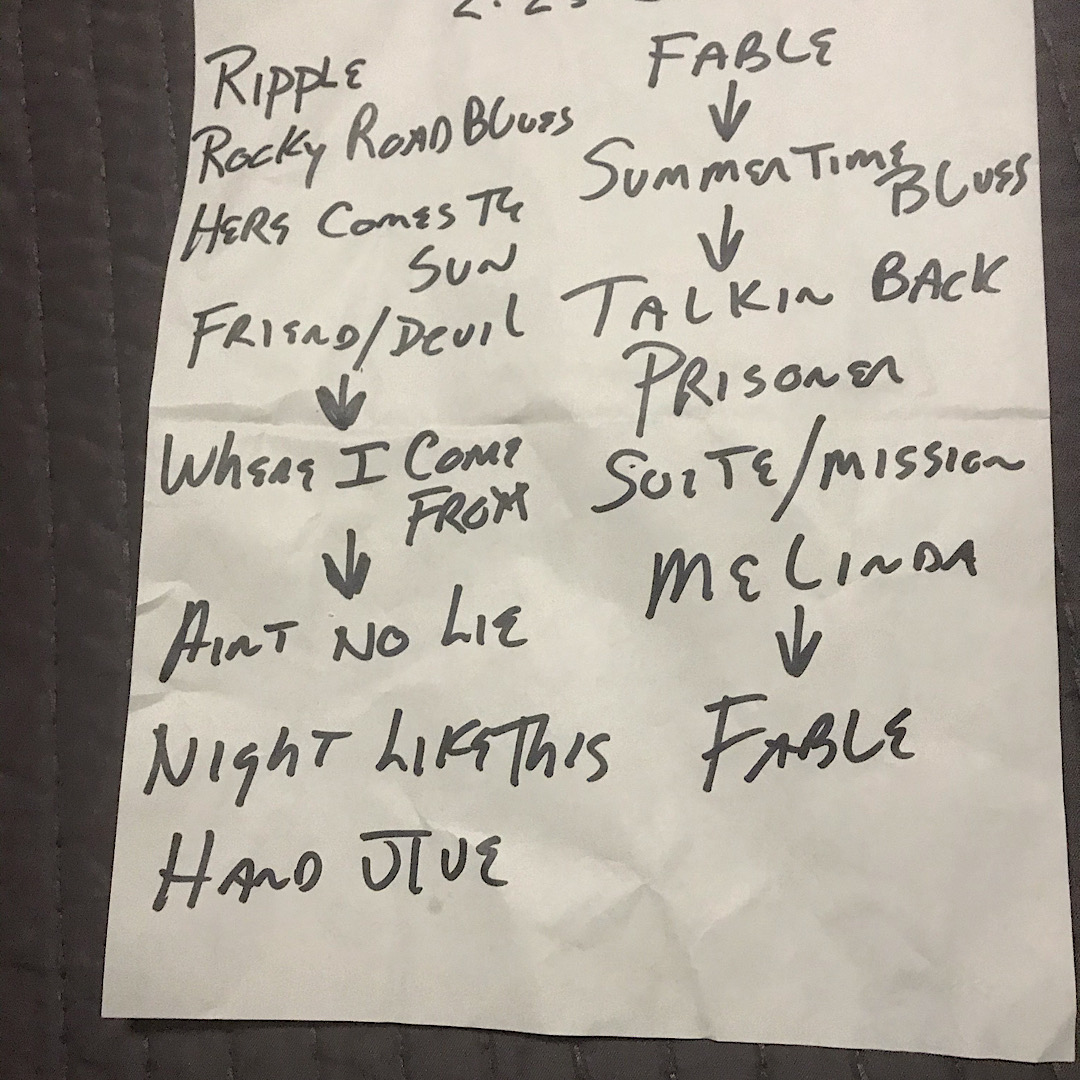 RIPPLE
ROCKY ROAD BLUES
HERE COMES THE
SUN
FRIEND/DEVIL
WHERE I COME
FROM
AINT NO LIE
NIGHT LIKE THIS
HAND JIVE
FABLE
SUMMERTIME
BLUES
TALKIN BACK
PRISONER
SUITE/MISSION
MELINDA
FABLE